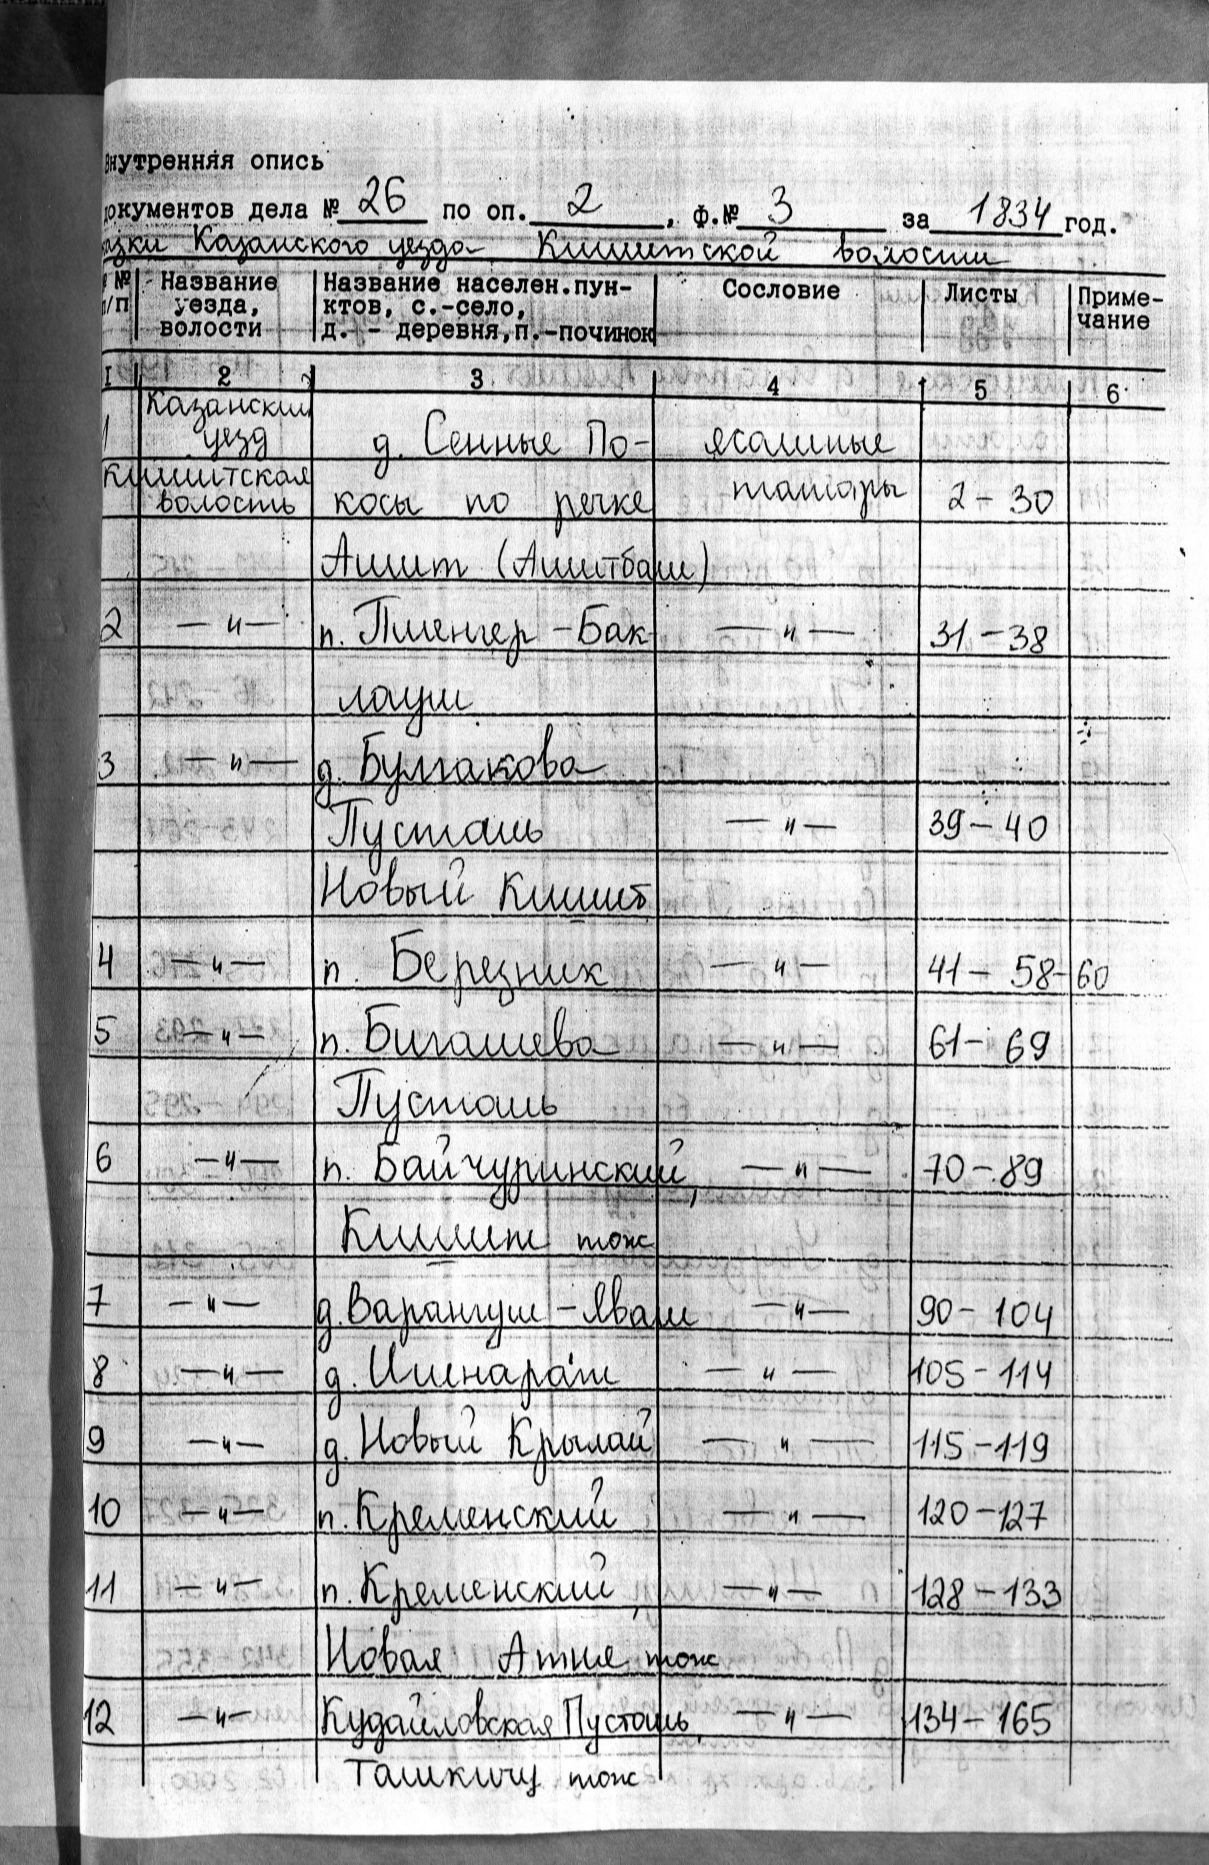 Внутренняя опись
документов дела № 26 по оп. 2, ф.№ 3 за 1834 год.
Казанского уезда Кишитской волости
№ п/п Название уезда, волости Название населен.пунктов, с.-село, д. - деревня, п.-починок Сословие Листы Примечание
1 2 3 4 5 6
Казанский
1 уезд д. Сенные По- ясашные
Кишитская
волость косы по речке татары 2-30
Ашит (Ашитбаш)
2 —"— п. Пшенгер-Бак- —"— 31-38
лауш
3 —"— д. Булгакова
Пусташь —"— 39-40
Новый Кишит
4 —"— п. Березник —"— 41-58-60
5 —"— п. Бигашева —"— 61-69
Пусташь
6 —"— п. Байчуринский, —"— 70-89
Кишит тож
7 —"— д. Варангуш-Яваш —"— 90-104
8 —"— д. Ишнарат —"— 105-114
9 —"— д. Новый Крылай —"— 115-119
10 —"— п. Кременский —"— 120-127
11 —"— п. Кременский, —"— 128-133
Новая Атня тож
12 —"— Кудайловская Пусташь, —"— 134-165
Ташкичу тож